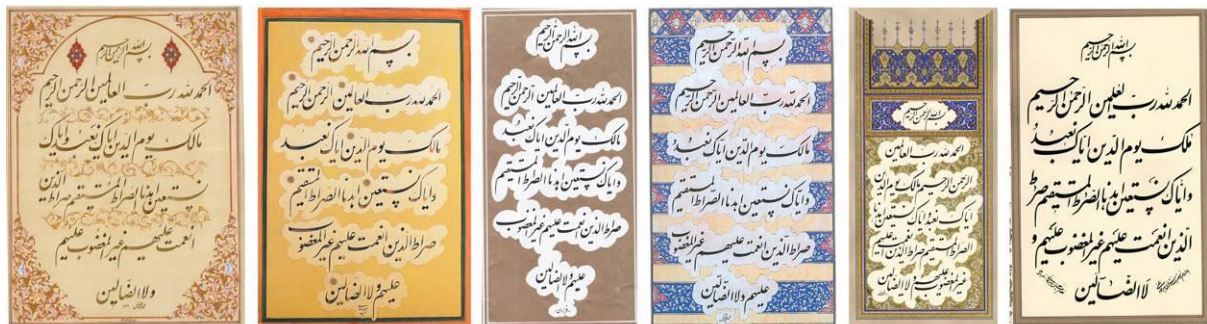 بسم الله الرحمن الرحیم
الحمدلله رب العالمین الرحمن الرحیم
مالک یوم الدین ایاک نعبد وایاک
نستعین اهدنا الصراط المستقیم صراط الذین
انعمت علیهم غیر المغضوب علیهم
ولا الضالین
بسم الله الرحمن الرحیم
الحمدلله رب العالمین الرحمن الرحیم
مالک یوم الدین ایاک نعبد
وایاک نستعین اهدنا الصراط المستقیم
صراط الذین انعمت علیهم غیر المغضوب
علیهم ولا الضالین
بسم الله الرحمن الرحیم
الحمدلله رب العالمین الرحمن الرحیم
مالک یوم الدین ایاک نعبد
وایاک نستعین اهدنا الصراط المستقیم
صراط الذین انعمت علیهم غیر المغضوب
علیهم ولا الضالین
بسم الله الرحمن الرحیم
الحمدلله رب العالمین الرحمن الرحیم
مالک یوم الدین ایاک نعبد
وایاک نستعین اهدنا الصراط المستقیم
صراط الذین انعمت علیهم غیر المغضوب
علیهم ولا الضالین
بسم الله الرحمن الرحیم
الحمدلله رب العالمین
الرحمن الرحیم مالک یوم الدین
ایاک نعبد وایاک نستعین اهدنا
الصراط المستقیم صراط الذین انعمت علیهم
غیر المغضوب علیهم ولا الضالین
بسم الله الرحمن الرحیم
الحمدلله رب العلمین الرحمن الرحیم
ملک یوم الدین ایاک نعبد
وایاک نستعین اهدنا الصرط المستقیم صرط
الذین انعمت علیهم غیر المغضوب علیهم و
لا الضالین